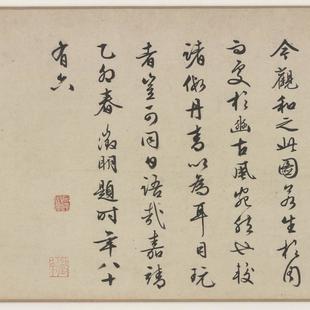 今觀和之此圖若生於周
而處於豳古風宛然也校
諸假丹青以為耳目玩
者豈可同日語哉嘉靖
乙卯春徵明題時年八十
有六